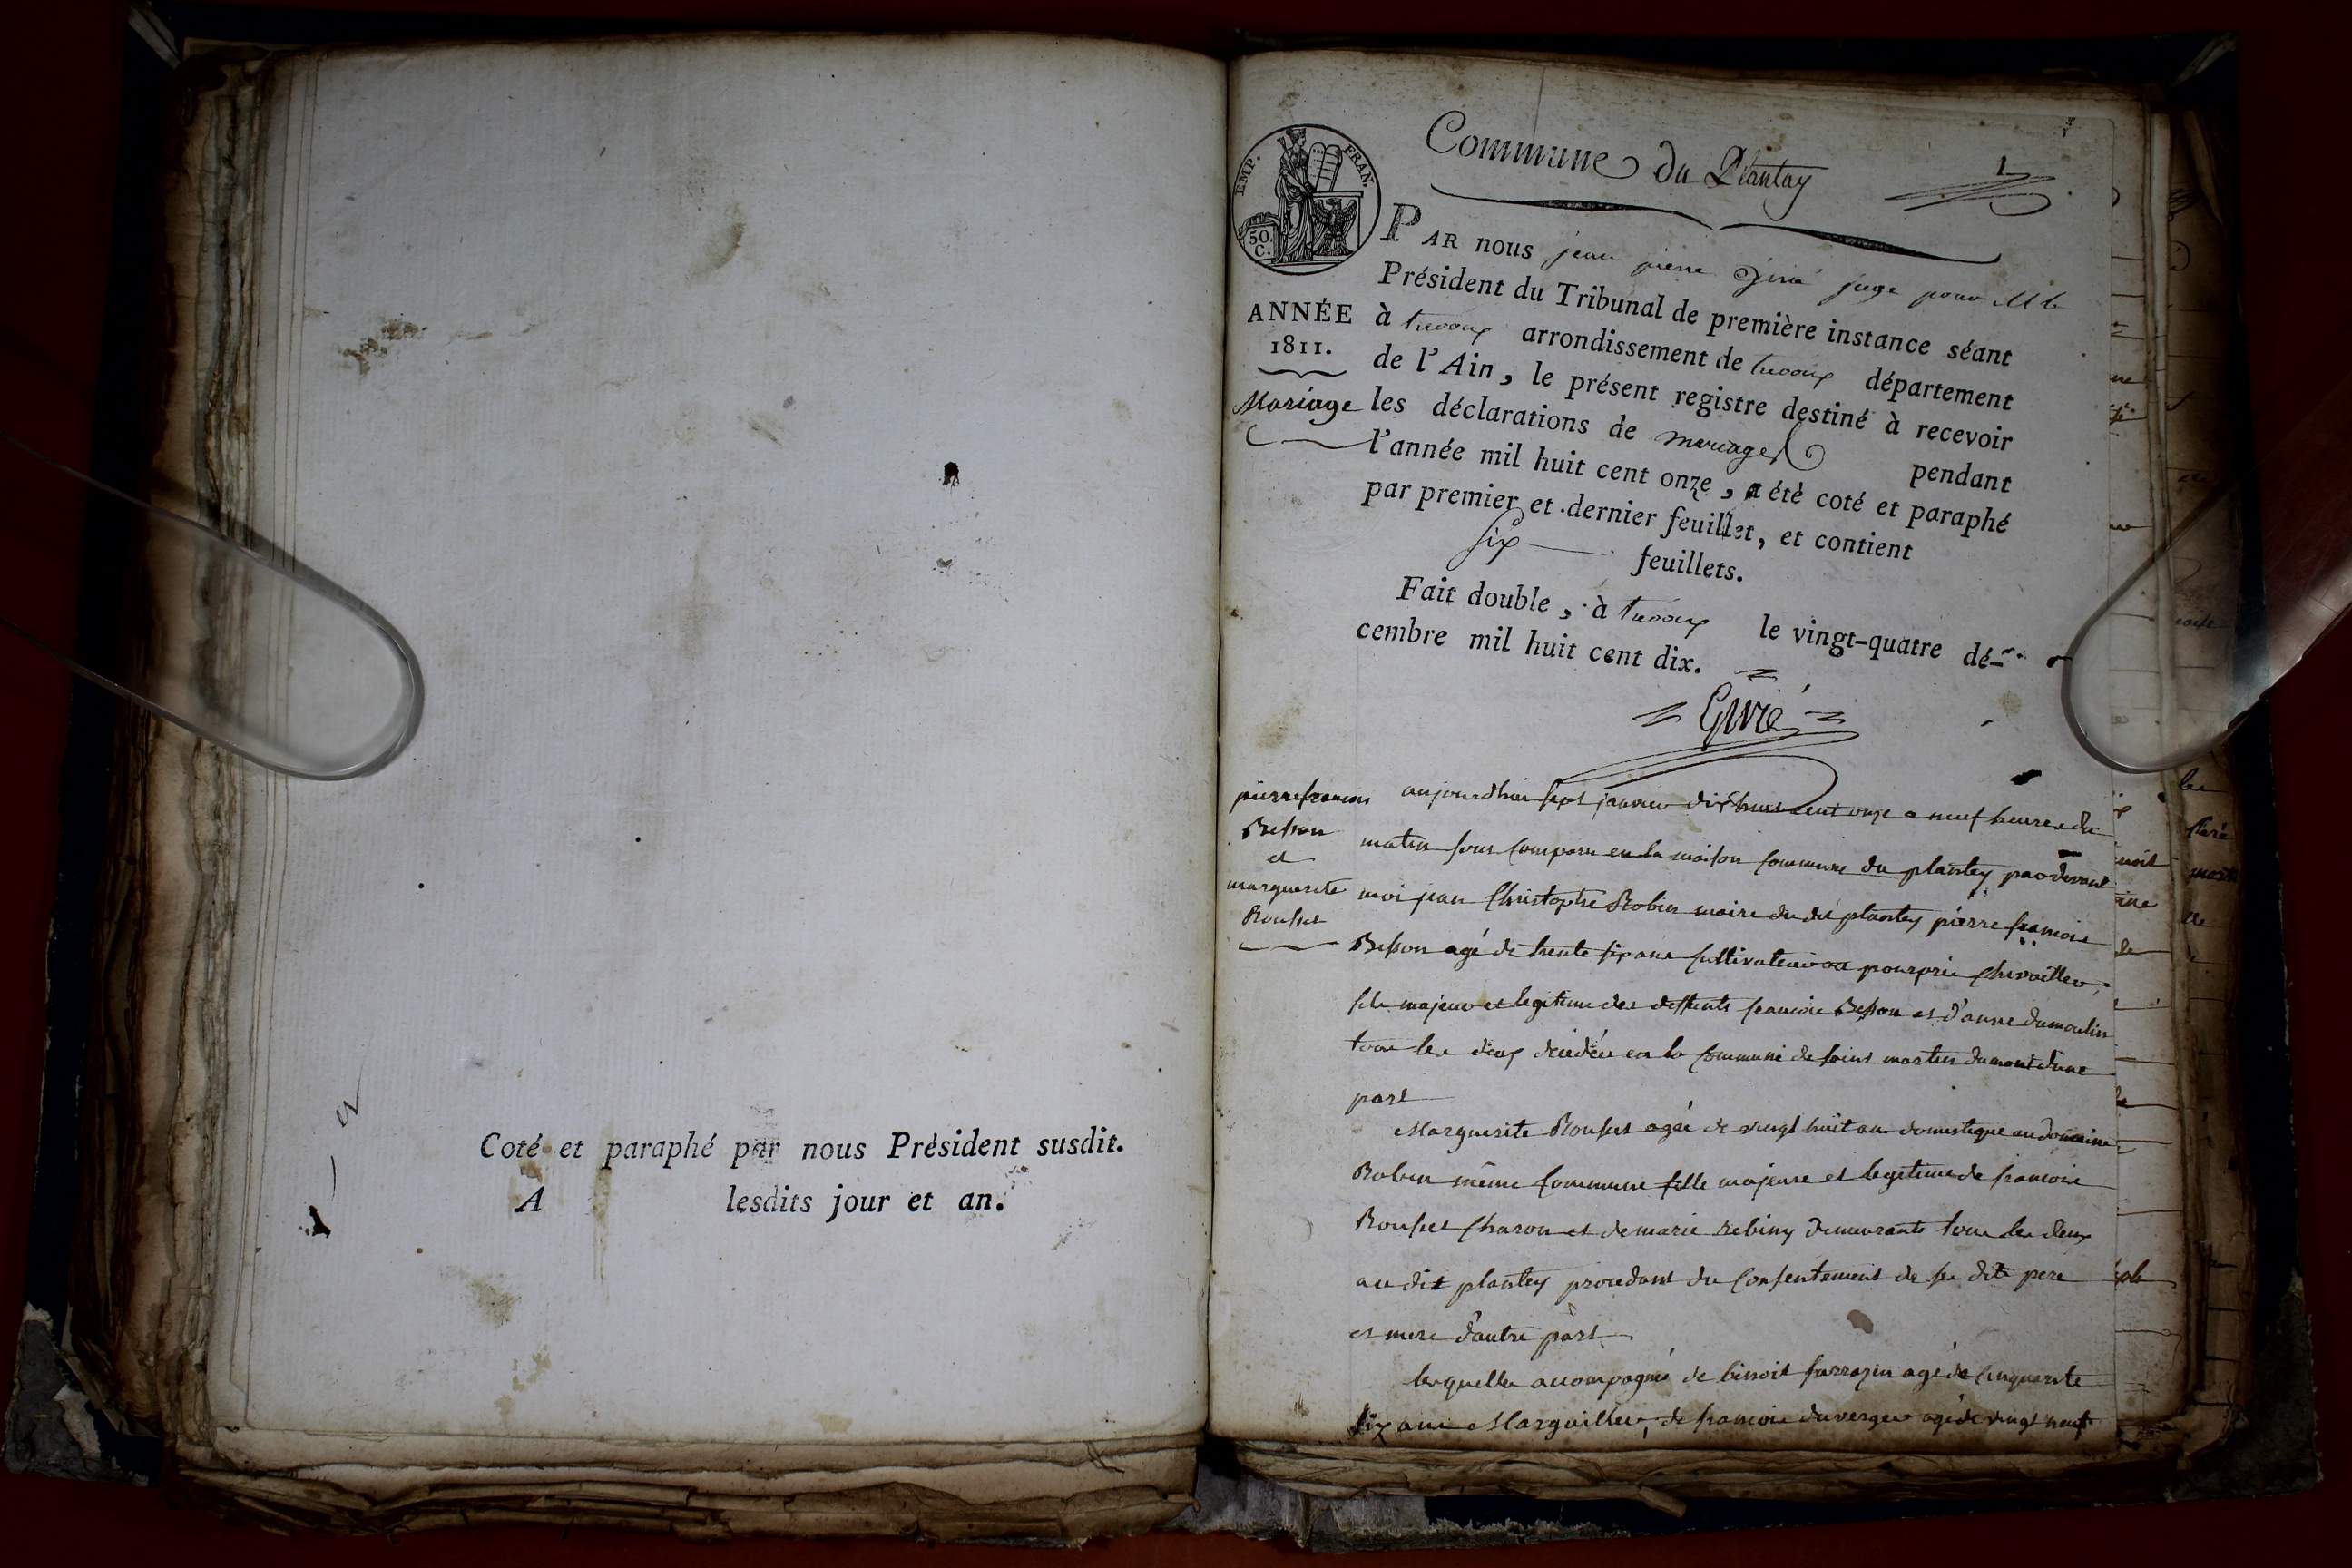 Coté et paraphé par nous Président susdit.
A lesdits jour et an.
Commune du Plantay
1
EMP. FRAN.
50 C.
PAR nous jean pierre Givié juge pour M le
Président du Tribunal de première instance séant
ANNÉE
1811.
Mariage
à trevoux arrondissement de trevoux département
de l'Ain, le présent registre destiné à recevoir
les déclarations de mariages pendant
l'année mil huit cent onze, a été coté et paraphé
par premier et dernier feuillet, et contient
six feuillets.
Fait double, à trevoux le vingt-quatre dé-
cembre mil huit cent dix.
Givié
pierre francois
Besson
et
marguerite
Rousset
aujourdhui sept janvier dix huit cent onze a neuf heures du
matin sous comparu en la maison commune du plantey pardevant
moi jean Christophe Robin maire du dit plantey pierre francois
Besson agé de trente six ans cultivateur au
fils majeur et legitime des deffunts francois Besson et d'anne dumoulin
tous les deux décédés en la commune de saint martin dumont dune
part
Marguerite Rousset agée de vingt huit an domestique au domaine
Robin même commune fille majeure et legitime de francois
Rousset Charon et de marie Rebiny demeurants tous les deux
au dit plantey procedant du consentement de ses dits pere
et mere d'autre part
lesquelles accompagnés de benoit sarrazin agé de cinquante
six ans Marguillier, de francois duverger agé de vingt neuf